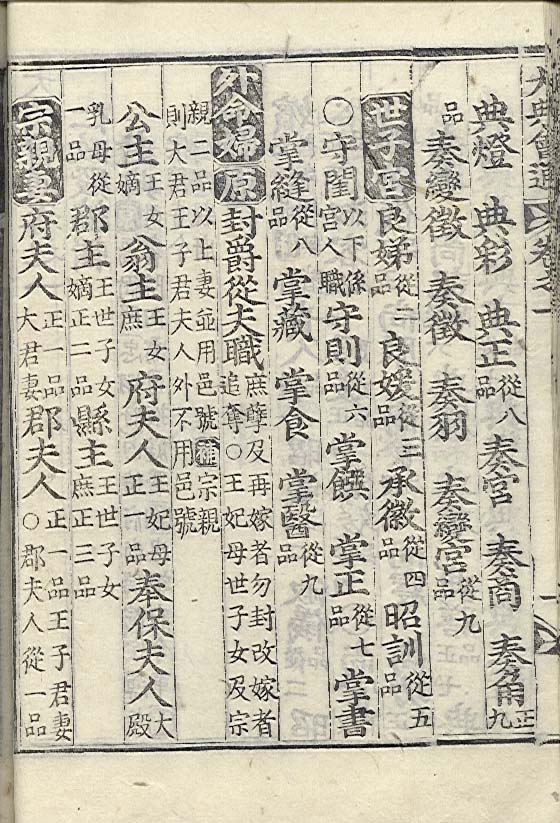 大典會通 卷之一
典燈 典彩 典正從八品 奏宮 奏商 奏角正九
品 奏變徵 奏徵 奏羽 奏變宮從九品
世子宮 良娣從二品 良媛從三品 承徽從四品 昭訓從五品
○守閨以下係宮人職 守則從六品 掌饌 掌正從七品 掌書
掌縫從八品 掌藏 掌食 掌醫從九品
外命婦 原 封爵從夫職庶孼及再嫁者勿封改嫁者追奪○王妃母世子女及宗
親二品以上妻並用邑號 補 宗親則大君王子君夫人外不用邑號
公主王女嫡 翁主王女庶 府夫人王妃母正一品 奉保夫人大殿
乳母從一品 郡主王世子女嫡正二品 縣主王世子女庶正三品
宗親妻 府夫人正一品大君妻 郡夫人正一品王子君妻○郡夫人從一品